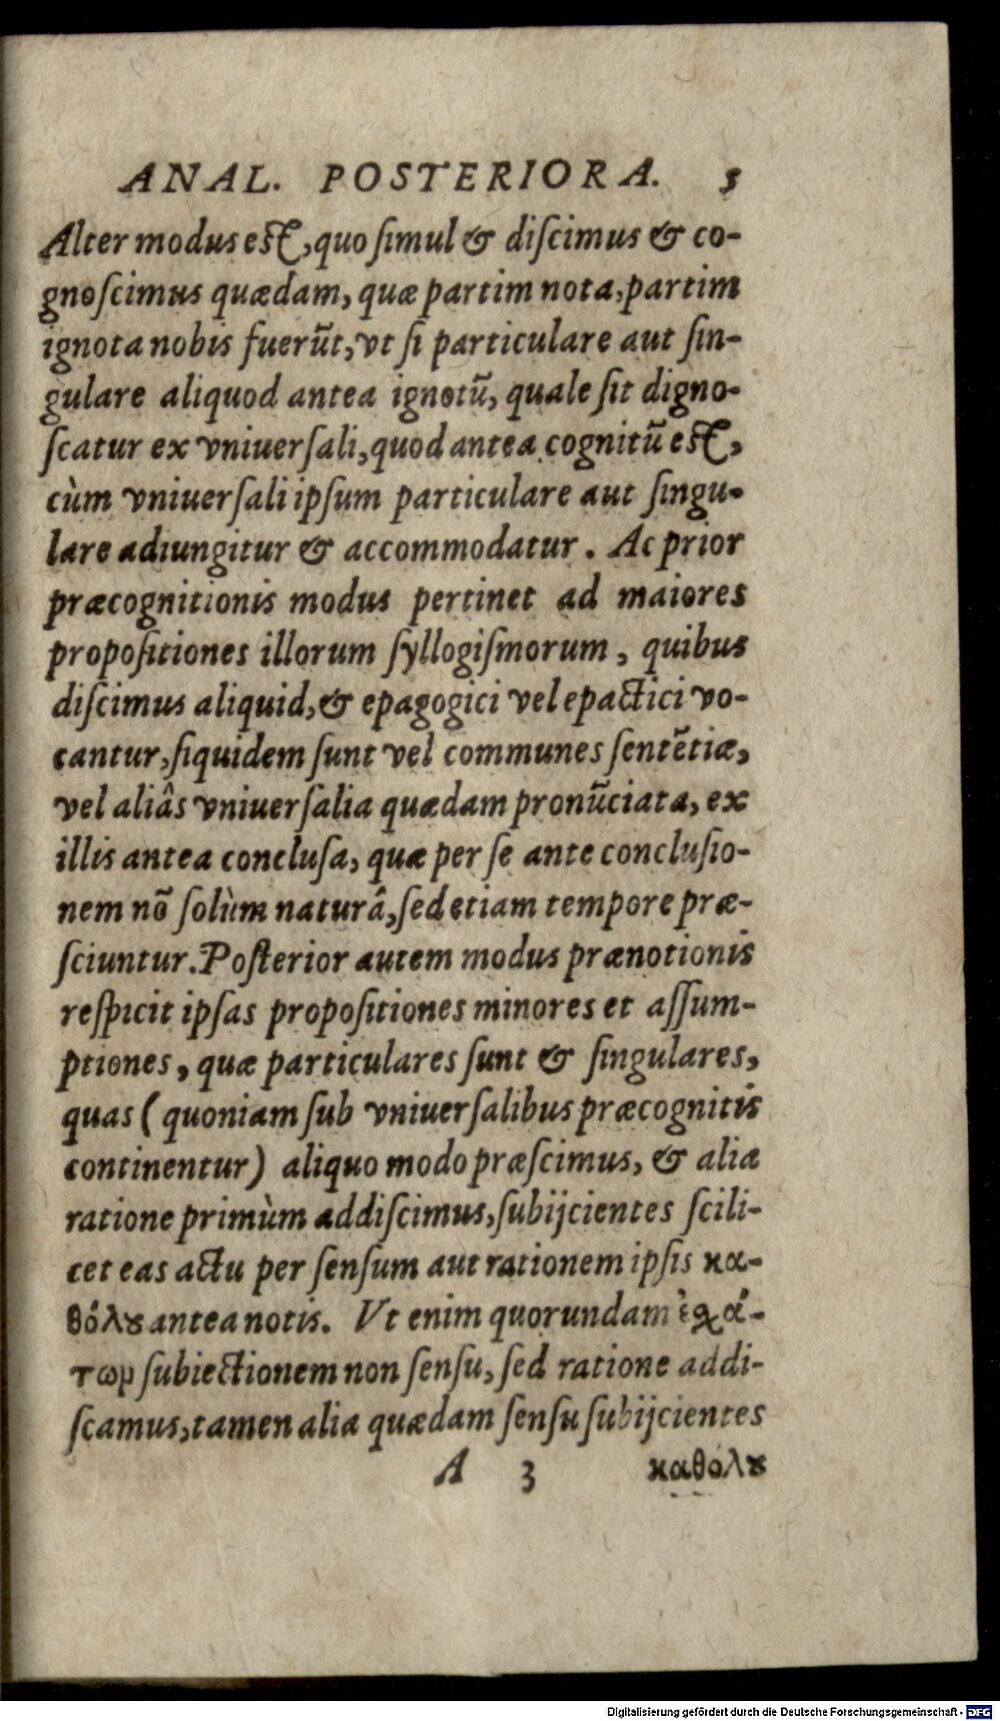 ANAL. POSTERIORA. 5
Alter modus est, quo ſimul & diſcimus & co-
gnoſcimus quædam, quæ partim nota, partim
ignota nobis fuerũt, vt ſi particulare aut ſin-
gulare aliquod antea ignotũ, quale ſit digno-
ſcatur ex vniuerſali, quod antea cognitũ est,
cùm vniuerſali ipſum particulare aut ſingu-
lare adiungitur & accommodatur. Ac prior
præcognitionis modus pertinet ad maiores
propoſitiones illorum ſyllogiſmorum, quibus
diſcimus aliquid, & epagogici vel epactici vo-
cantur, ſiquidem ſunt vel communes ſentẽtiæ,
vel aliâs vniuerſalia quædam pronũciata, ex
illis antea concluſa, quæ per ſe ante concluſio-
nem nõ ſolùm naturâ, ſed etiam tempore præ-
ſciuntur. Poſterior autem modus prænotionis
reſpicit ipſas propoſitiones minores et aſſum-
ptiones, quæ particulares ſunt & ſingulares,
quas (quoniam ſub vniuerſalibus præcognitis
continentur) aliquo modo præſcimus, & alia
ratione primùm addiſcimus, ſubijcientes ſcili-
cet eas actu per ſenſum aut rationem ipſis κα-
θόλȣ antea notis. Vt enim quorundam ἐχά-
των ſubiectionem non ſenſu, ſed ratione addi-
ſcamus, tamen alia quædam ſenſu ſubijcientes
A 3 καθόλȣ
Digitalisierung gefördert durch die Deutsche Forschungsgemeinschaft - DFG